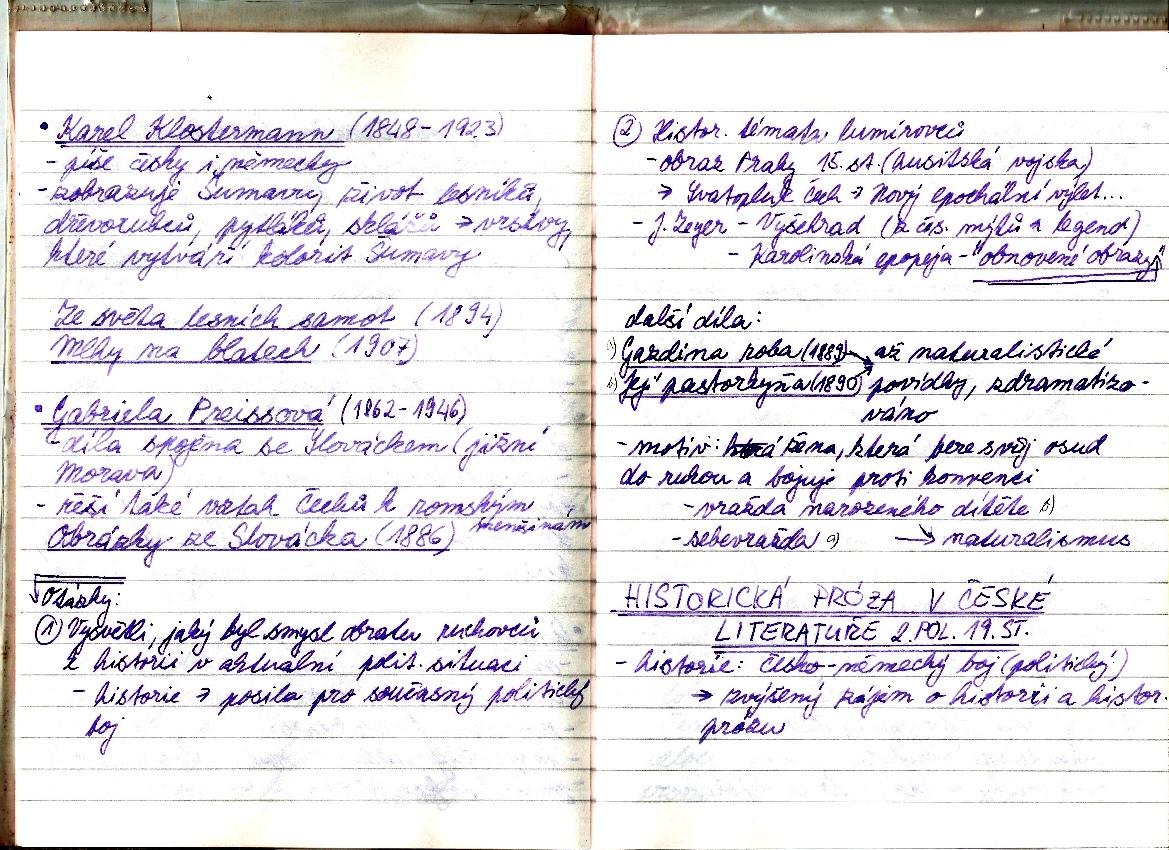 • Karel Klostermann (1848-1923)
- píše česky i německy
- zobrazuje Šumavu, život lesníků,
dřevorubců, pytláků, sklářů → vrstvy,
které vytváří kolorit Šumavy
Ze světa lesních samot (1894)
Mlhy na blatech (1907)
• Gabriela Preissová (1862-1946)
- díla spojena se Slováckem (jižní
Morava)
- řeší také vztah Čechů k romským
ženám
Obrázky ze Slovácka (1886)
Otázky:
① Vysvětli, jaký byl smysl obratu ruchovců
k historii v aktuální polit. situaci
- historie → posila pro současný politický
boj
② Histor. témata lumírovců
- obraz Prahy 15. st. (husitská vojska)
→ Svatopluk Čech → Nový epochální výlet...
- J. Zeyer - Vyšehrad (z čes. mýtů a legend)
- Karolinská epopeja - "obnovené obrazy"
další díla:
a) Gazdina roba (1889) → až naturalistické
b) Její pastorkyňa (1890) povídky, zdramatizo-
váno
- motiv: žena, která bere svůj osud
do rukou a bojuje proti konvenci
- vražda narozeného dítěte b)
- sebevražda a) → naturalismus
HISTORICKÁ PRÓZA V ČESKÉ
LITERATUŘE 2. POL. 19. ST.
- historie: česko-německý boj (politický)
→ zvýšený zájem o historii a histor.
prózu